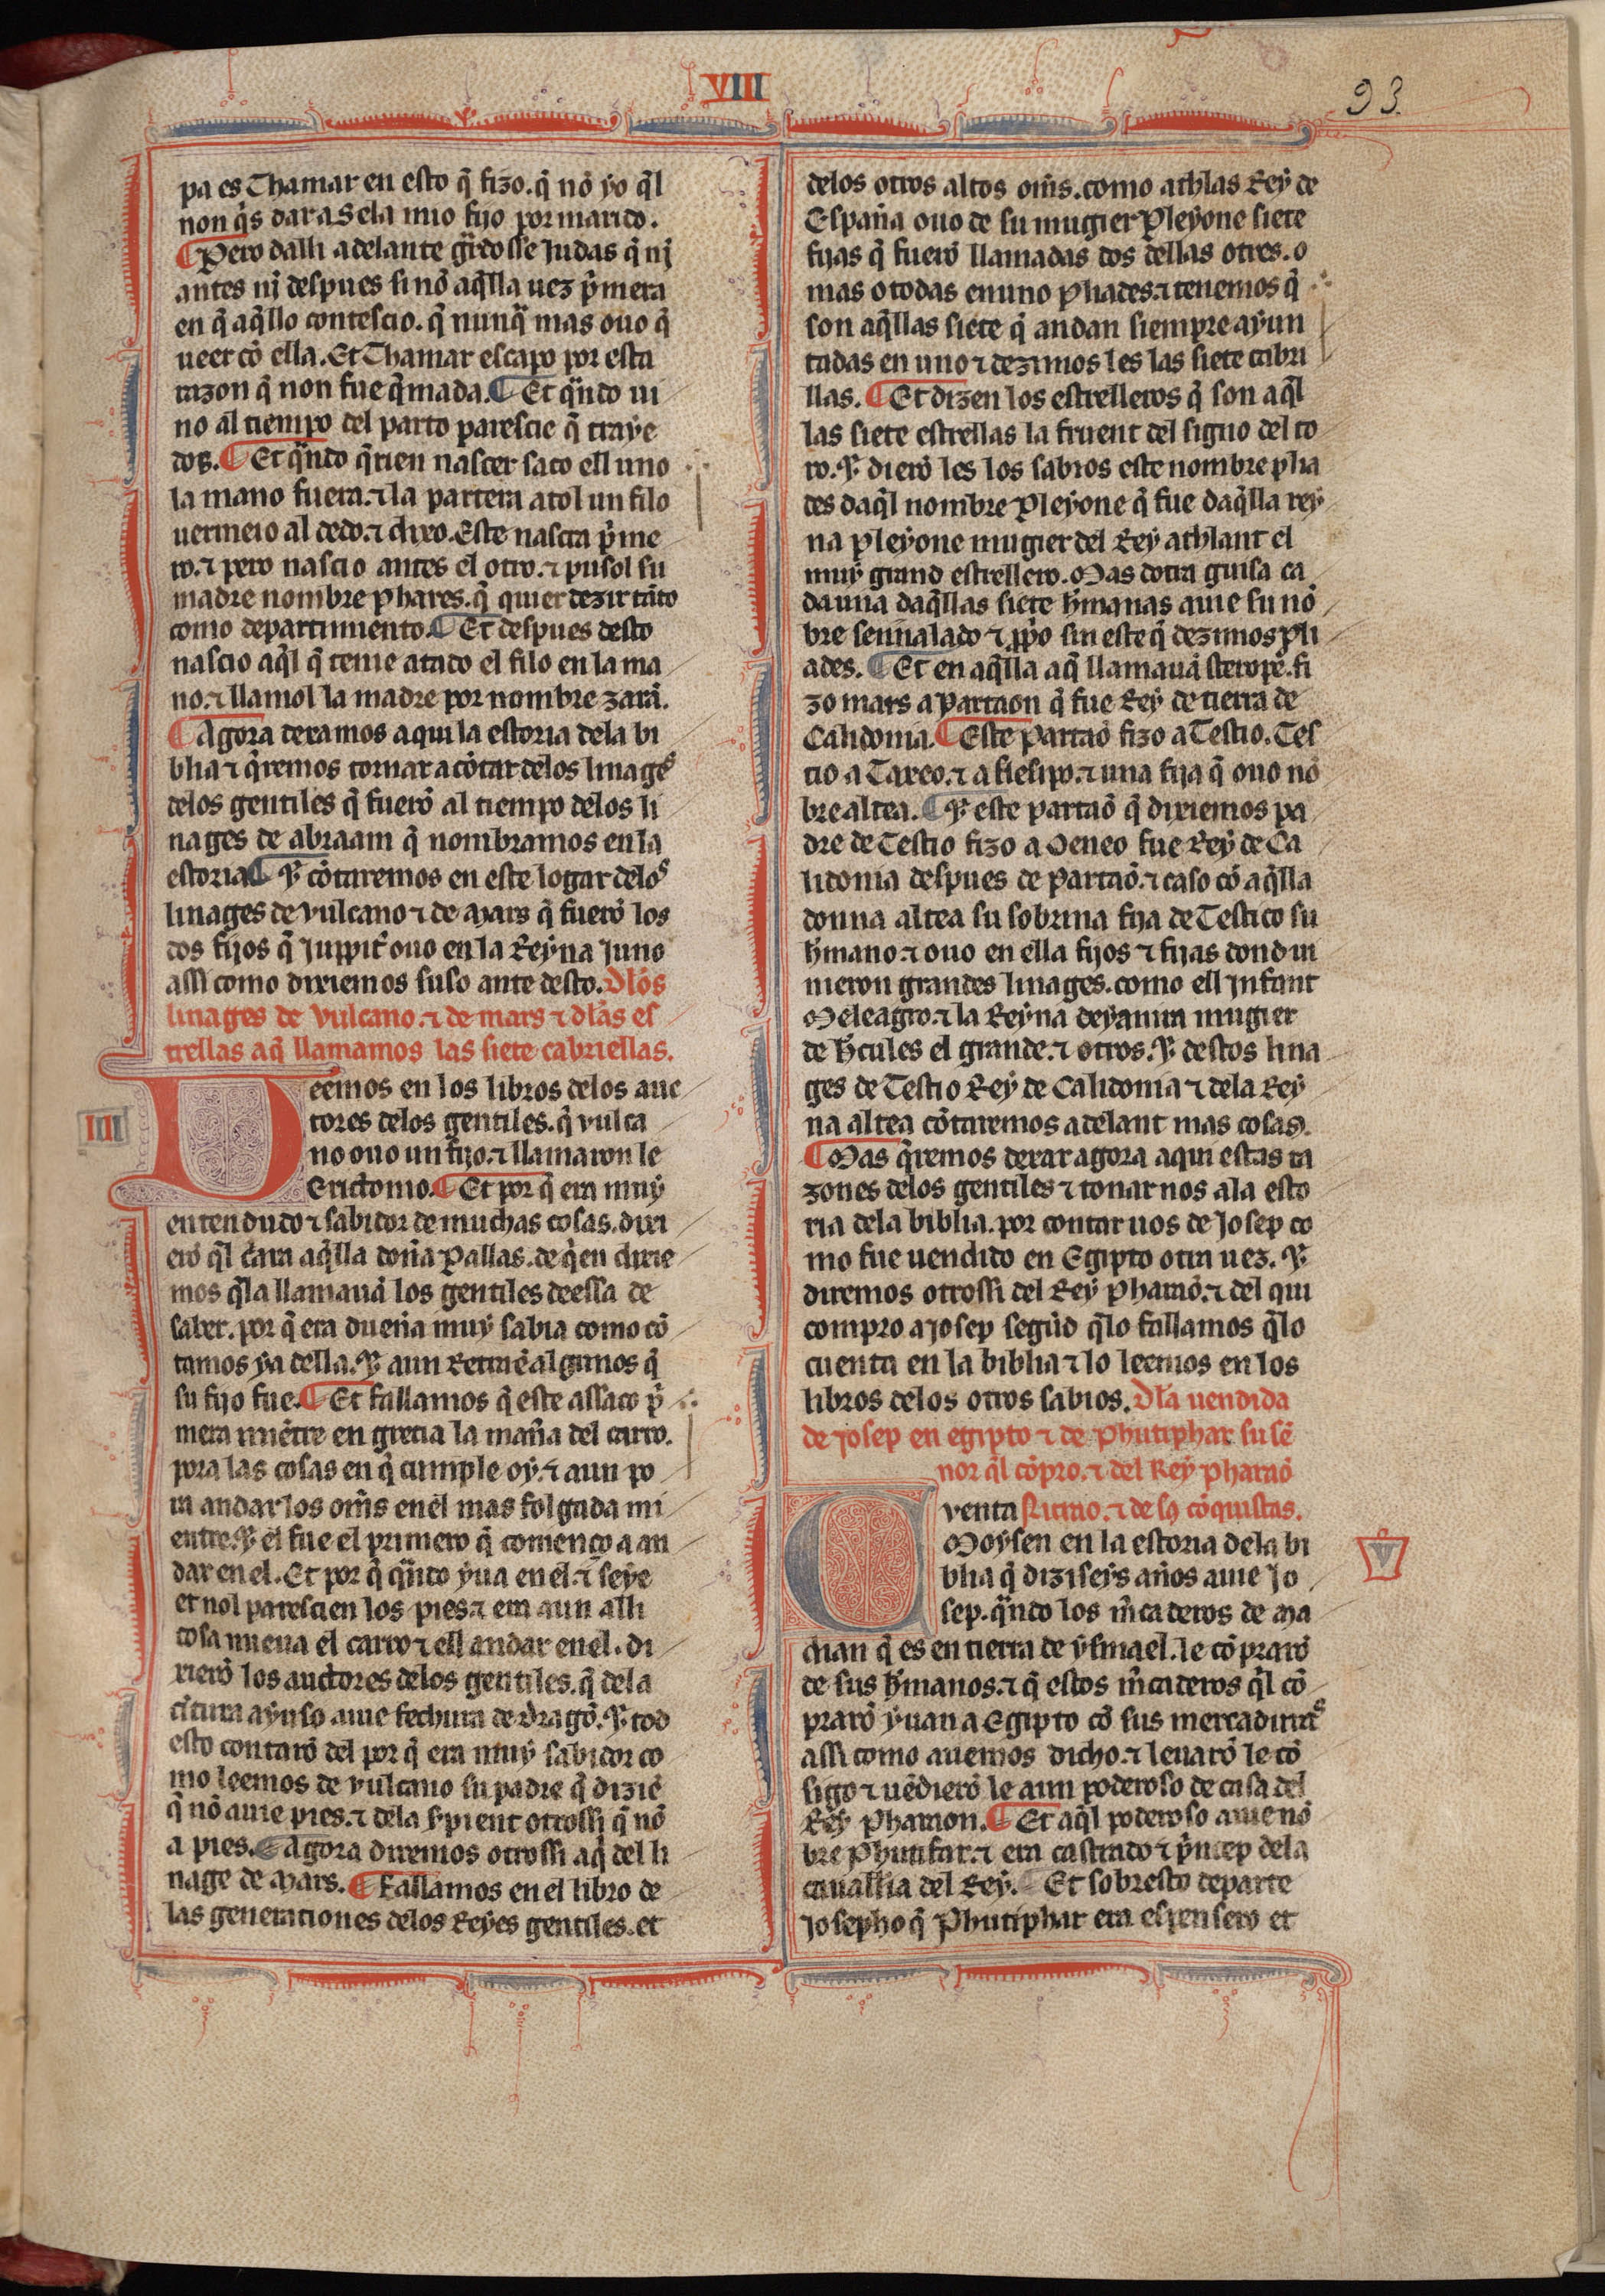 VIII
93.
pa es Thamar en esto q̃ fizo. q̃ nõ yo q̃l
non q̃s dar a Sela mio fijo por marido.
¶ Pero dalli adelante gr̃dosse Judas q̃ nj
antes nj despues si nõ aq̃lla uez p̃mera
en q̃ aq̃llo contescio. q̃ nunq̃ mas ouo q̃
ueer cõ ella. Et Thamar escapo por esta
razon q̃ non fue q̃mada. ¶ Et q̃ndo ui
no al tiempo del parto parescie q̃ traye
dos. ¶ Et q̃ndo q̃rien nascer saco ell uno
la mano fuera. ⁊ la partera atol un filo
uermeio al dedo. ⁊ dixo. Este nascra p̃me
ro. ⁊ pero nascio antes el otro. ⁊ pusol su
madre nombre Phares. q̃ quier dezir tãto
como departimiento. ¶ Et despues desto
nascio aq̃l q̃ tenie atado el filo en la ma
no. ⁊ llamol la madre por nombre zarã.
¶ Agora dexamos aqui la estoria dela bi
blia ⁊ q̃remos tornar a cõtar delos linages
delos gentiles q̃ fuerõ al tiempo delos li
nages de abraam q̃ nombramos en la
estoria ¶ Y cõtaremos en este logar delos
linages de vulcano ⁊ de Mars q̃ fuerõ los
dos fijos q̃ Juppit̃ ouo en la Reyna Juno
assi como dixiemos suso ante desto. Dlõs
linages de vulcano. ⁊ de mars ⁊ dlãs es
trellas aq̃ llamamos las siete cabriellas.
III
Leemos en los libros delos auc
tores delos gentiles. q̃ vulca
no ouo un fijo. ⁊ llamaron le
Erictonio. ¶ Et por q̃ era muy
entendudo ⁊ sabidor de muchas cosas. dixi
erõ q̃l c̃ara aq̃lla doña Pallas. de q̃en dixie
mos q̃la llamauã los gentiles deessa de
saber. por q̃ era dueña muy sabia como cõ
tamos ya della. Y aun Retraẽ algunos q̃
su fijo fue. ¶ Et fallamos q̃ este assaco p̃
mera miẽtre en grecia la mañ̃a del carro.
pora las cosas en q̃ cumple oy. ⁊ aun po
ra andar los om̃s enel mas folgada mi
entre. Y el fue el primero q̃ començo a an
dar en el. Et por q̃ q̃ndo yua en el. ⁊ seye
et nol parescien los pies. ⁊ era aun alli
cosa nueua el carro ⁊ ell andar en el. di
xierõ los auctores delos gentiles. q̃ dela
cĩtura ayuso auie fechura de dragõ. Y tod
esto contarõ del por q̃ era muy sabidor co
mo leemos de vulcano su padre q̃ diziẽ
q̃ nõ auie pies. ⁊ dela s̃pient otrossi q̃ nõ
a pies. ¶ Agora diremos otrossi aq̃ del li
nage de Mars. ¶ Fallamos en el libro de
las generationes delos Reyes gentiles. et
delos otros altos om̃s. como athlas Rey de
España ouo de su mugier Pleyone siete
fijas q̃ fuerõ llamadas dos dellas o tres. o
mas o todas en uno Phades. ⁊ tenemos q̃
son aq̃llas siete q̃ andan siempre ayun
tadas en uno ⁊ dezimos les las siete cabri
llas. ¶ Et dizen los estrelleros q̃ son aq̃l
las siete estrellas la fruent del signo del to
ro. Y dierõ les los sabios este nombre plia
des daq̃l nombre Pleyone q̃ fue daq̃lla rey
na Pleyone mugier del Rey athlant el
muy grand estrellero. Mas dotra guisa ca
dauna daq̃llas siete h̃manas auie su nõ
bre sennalado ⁊ pp̃o sin este q̃ dezimos pli
ades. ¶ Et en aq̃lla aq̃ llamauã steropẽ. fi
zo mars a Partaon q̃ fue Rey de tierra de
Calidonia. ¶ Este Partaõ fizo a Testio. Tes
tio a Toxeo. ⁊ a flesipo. ⁊ una fija q̃ ouo nõ
bre altea. ¶ Y este partaõ q̃ dixiemos pa
dre de Testio fizo a Oeneo fue Rey de Ca
lidonia despues de Partaõ. ⁊ caso cõ aq̃lla
donna altea su sobrina fija de Testico su
h̃mano. ⁊ ouo en ella fijos ⁊ fijas dond ui
nieron grandes linages. como ell Jnfant
Meleagro. ⁊ la Reyna deyanira mugier
de h̃cules el grande. ⁊ otros. Y destos lina
ges de Testio Rey de Calidonia ⁊ dela Rey
na altea cõtaremos adelant mas cosas.
¶ Mas q̃remos dexar agora aqui estas ra
zones delos gentiles ⁊ tonarnos ala esto
ria dela biblia. por contar uos de Josep co
mo fue uendido en Egipto otra uez. Y
diremos otrossi del Rey Pharaõ. ⁊ del qui
compro a josep segũd q̃lo fallamos q̃lo
cuenta en la biblia ⁊ lo leemos en los
libros delos otros sabios. Dlã uendida
de josep en egipto ⁊ de Phutiphar su sẽ
nor q̃l cõpro. ⁊ del Rey pharaõ
Cventa Nicrao. ⁊ de sꝯ cõquistas.
V
Moysen en la estoria dela bi
blia q̃ diziseys años auie Jo
sep. q̃ndo los m̃caderos de Ma
dian q̃ es en tierra de ysmael. le cõprarõ
de sus h̃manos. ⁊ q̃ estos m̃caderos q̃l cõ
prarõ yuan a Egipto cõ sus mercaduras
assi como auemos dicho. ⁊ leuarõ le cõ
sigo ⁊ uẽdierõ le a un poderoso de casa del
Rey Pharaon. ¶ Et aq̃l poderoso auie nõ
bre Phutifar. ⁊ era castrado ⁊ p̃ncep dela
cauallia del Rey. ¶ Et sobresto departe
Josepho q̃ Phutiphar era espensero et